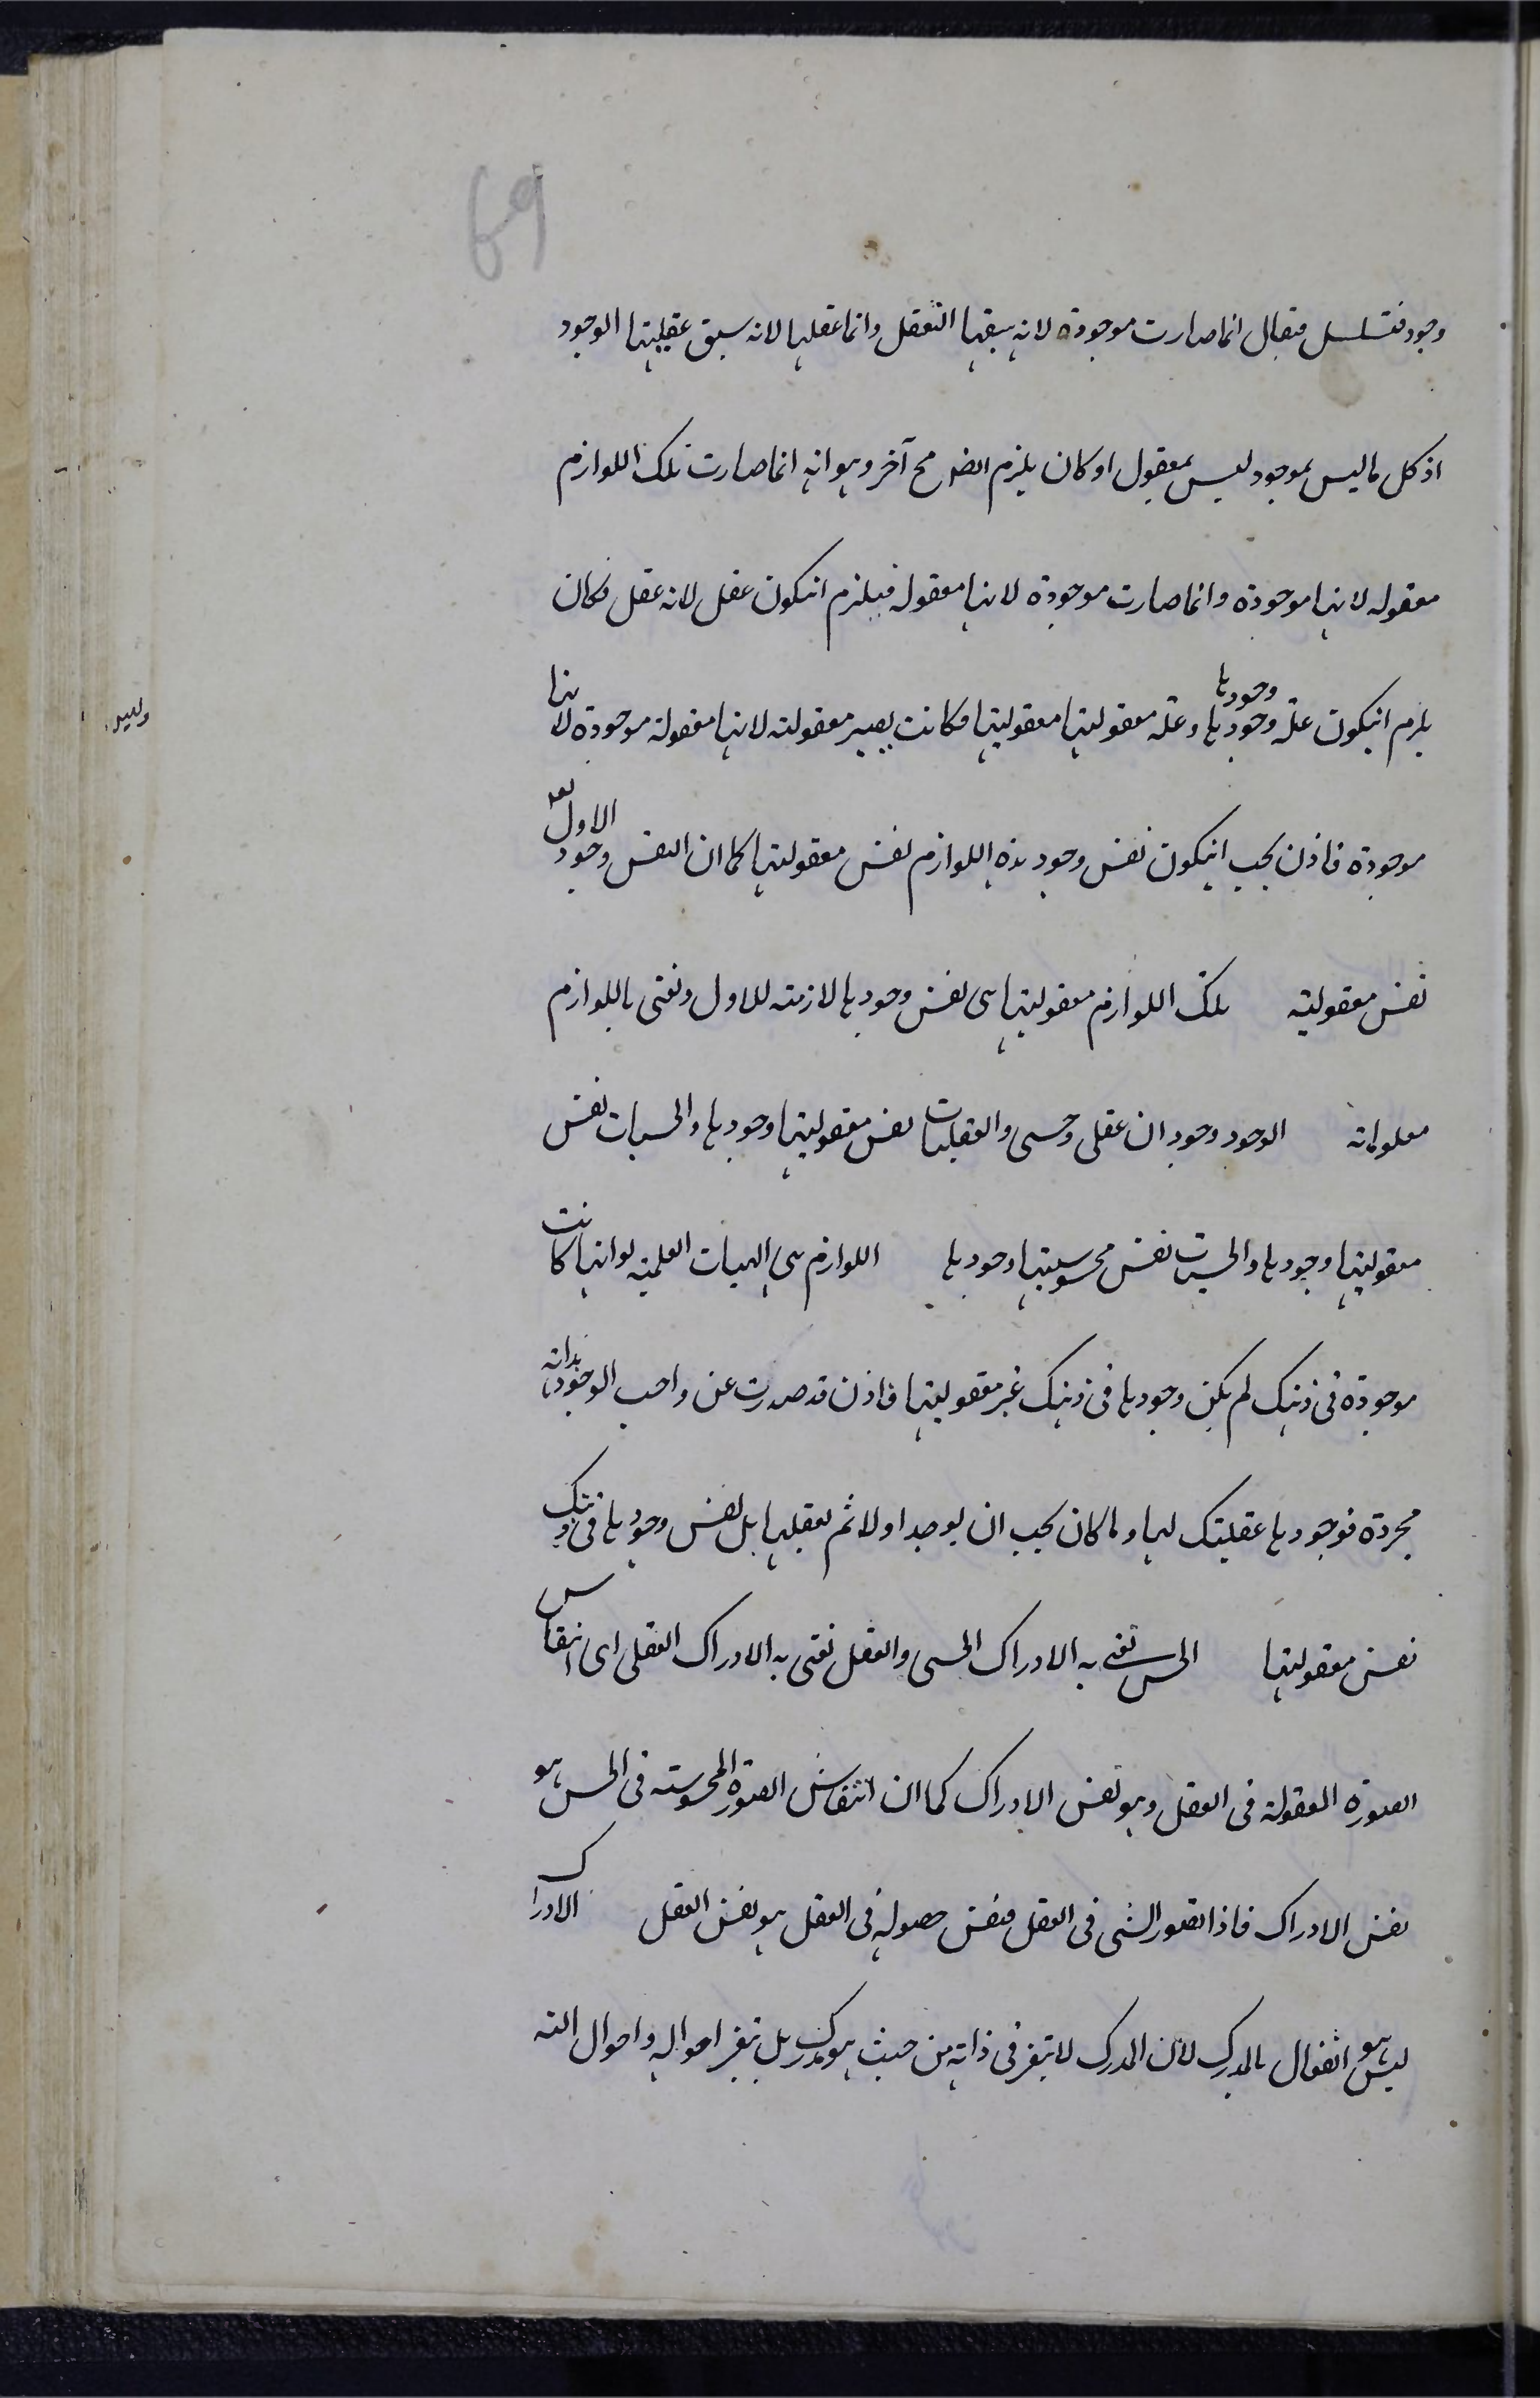 69
وجود فتسلسل فيقال انما صارت موجودة لانه سبقها التعقل وانما عقلها لانه سبق عقليتها الوجود
اذ كل ما ليس بموجود ليس بمعقول او كان يلزم ايضا مح آخر وهو انه انما صارت تلك اللوازم
معقوله لانها موجودة وانما صارت موجودة لانها معقوله فيلزم انيكون عقل لانه عقل فكان
يلزم انيكون علة وجودها وجودها وعلة معقوليتها معقوليتها فكانت يصير معقولته لانها معقولة موجودة لانها
موجودة فاذن يجب انيكون نفس وجود هذه اللوازم نفس معقوليتها كما ان النفس وجود الاول
نفس معقوليته تلك اللوازم معقوليتها هى نفس وجودها لازمته للاول ونعنى باللوازم
معلوماته الوجود وجودان عقلى وحسى والعقليات نفس معقوليتها وجودها والحسيات نفس
معقوليتها وجودها والحسيات نفس محسوسيتها وجودها اللوازم هى الهيات العلمية لو انها كانت
موجودة فى ذهنك لم يكن وجودها فى ذهنك غير معقوليتها فاذن قد صدرت عن واجب الوجود بذاته
مجردة فوجودها عقليتك لها وما كان يجب ان يوجد اولا ثم تعقلها بل نفس وجودها فى ذهنك
نفس معقوليتها الحس نعنى به الادراك الحسى والعقل نعنى به الادراك العقلى اى انتقاس
الصورة المعقولة فى العقل وهو نفس الادراك كما ان انتقاش الصورة المحسوسته فى الحس هو
نفس الادراك فاذا تصور الشى فى العقل فنفس حصوله فى العقل هو نفس العقل الادراك
ليس هو انفعال بالمدرك لان المدرك لا يتغير فى ذاته من حيث هو مدرك بل يتغير احواله واحوال الته